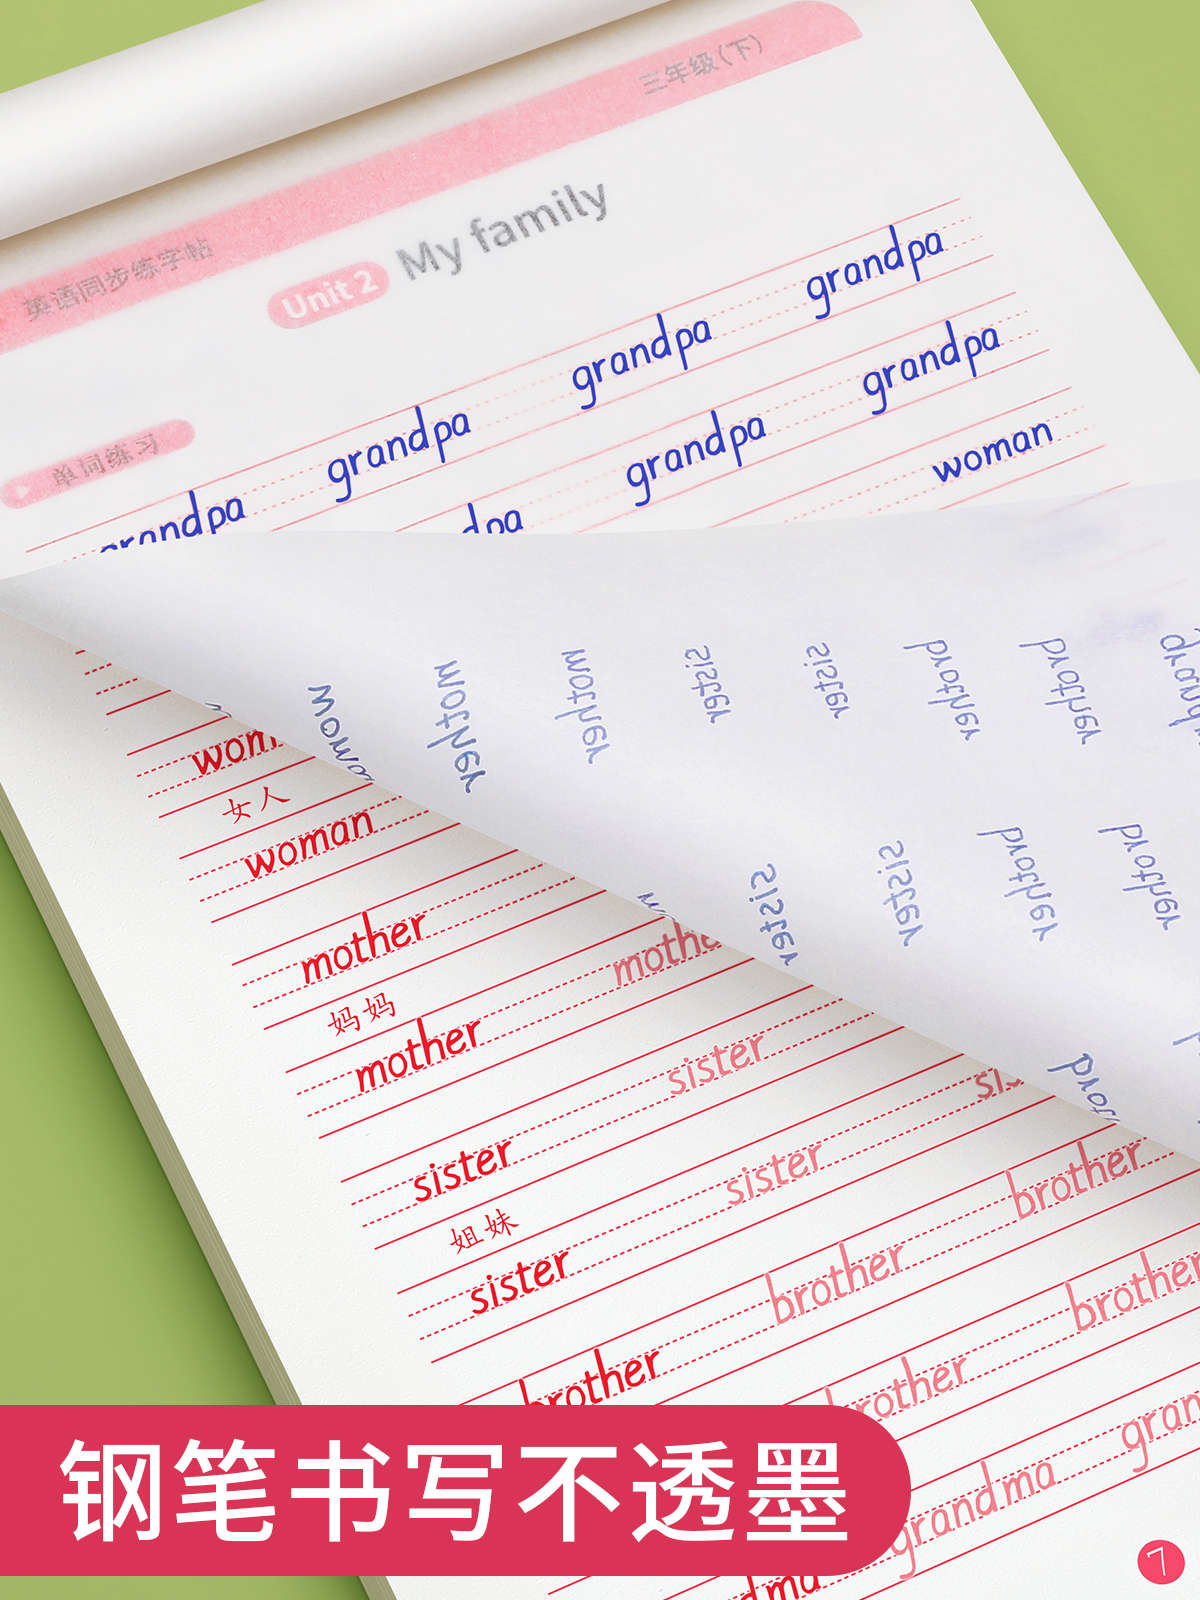 三年级(下)
英语同步练字帖
Unit 2 My family
单词练习
grandpa grandpa grandpa grandpa
grandpa grandpa
woman
mother mother sister sister brother brother
sister sister brother brother
女人
woman
mother
妈妈
mother
sister
sister sister
姐妹
sister
brother brother brother
brother brother
grandma
钢笔书写不透墨
7